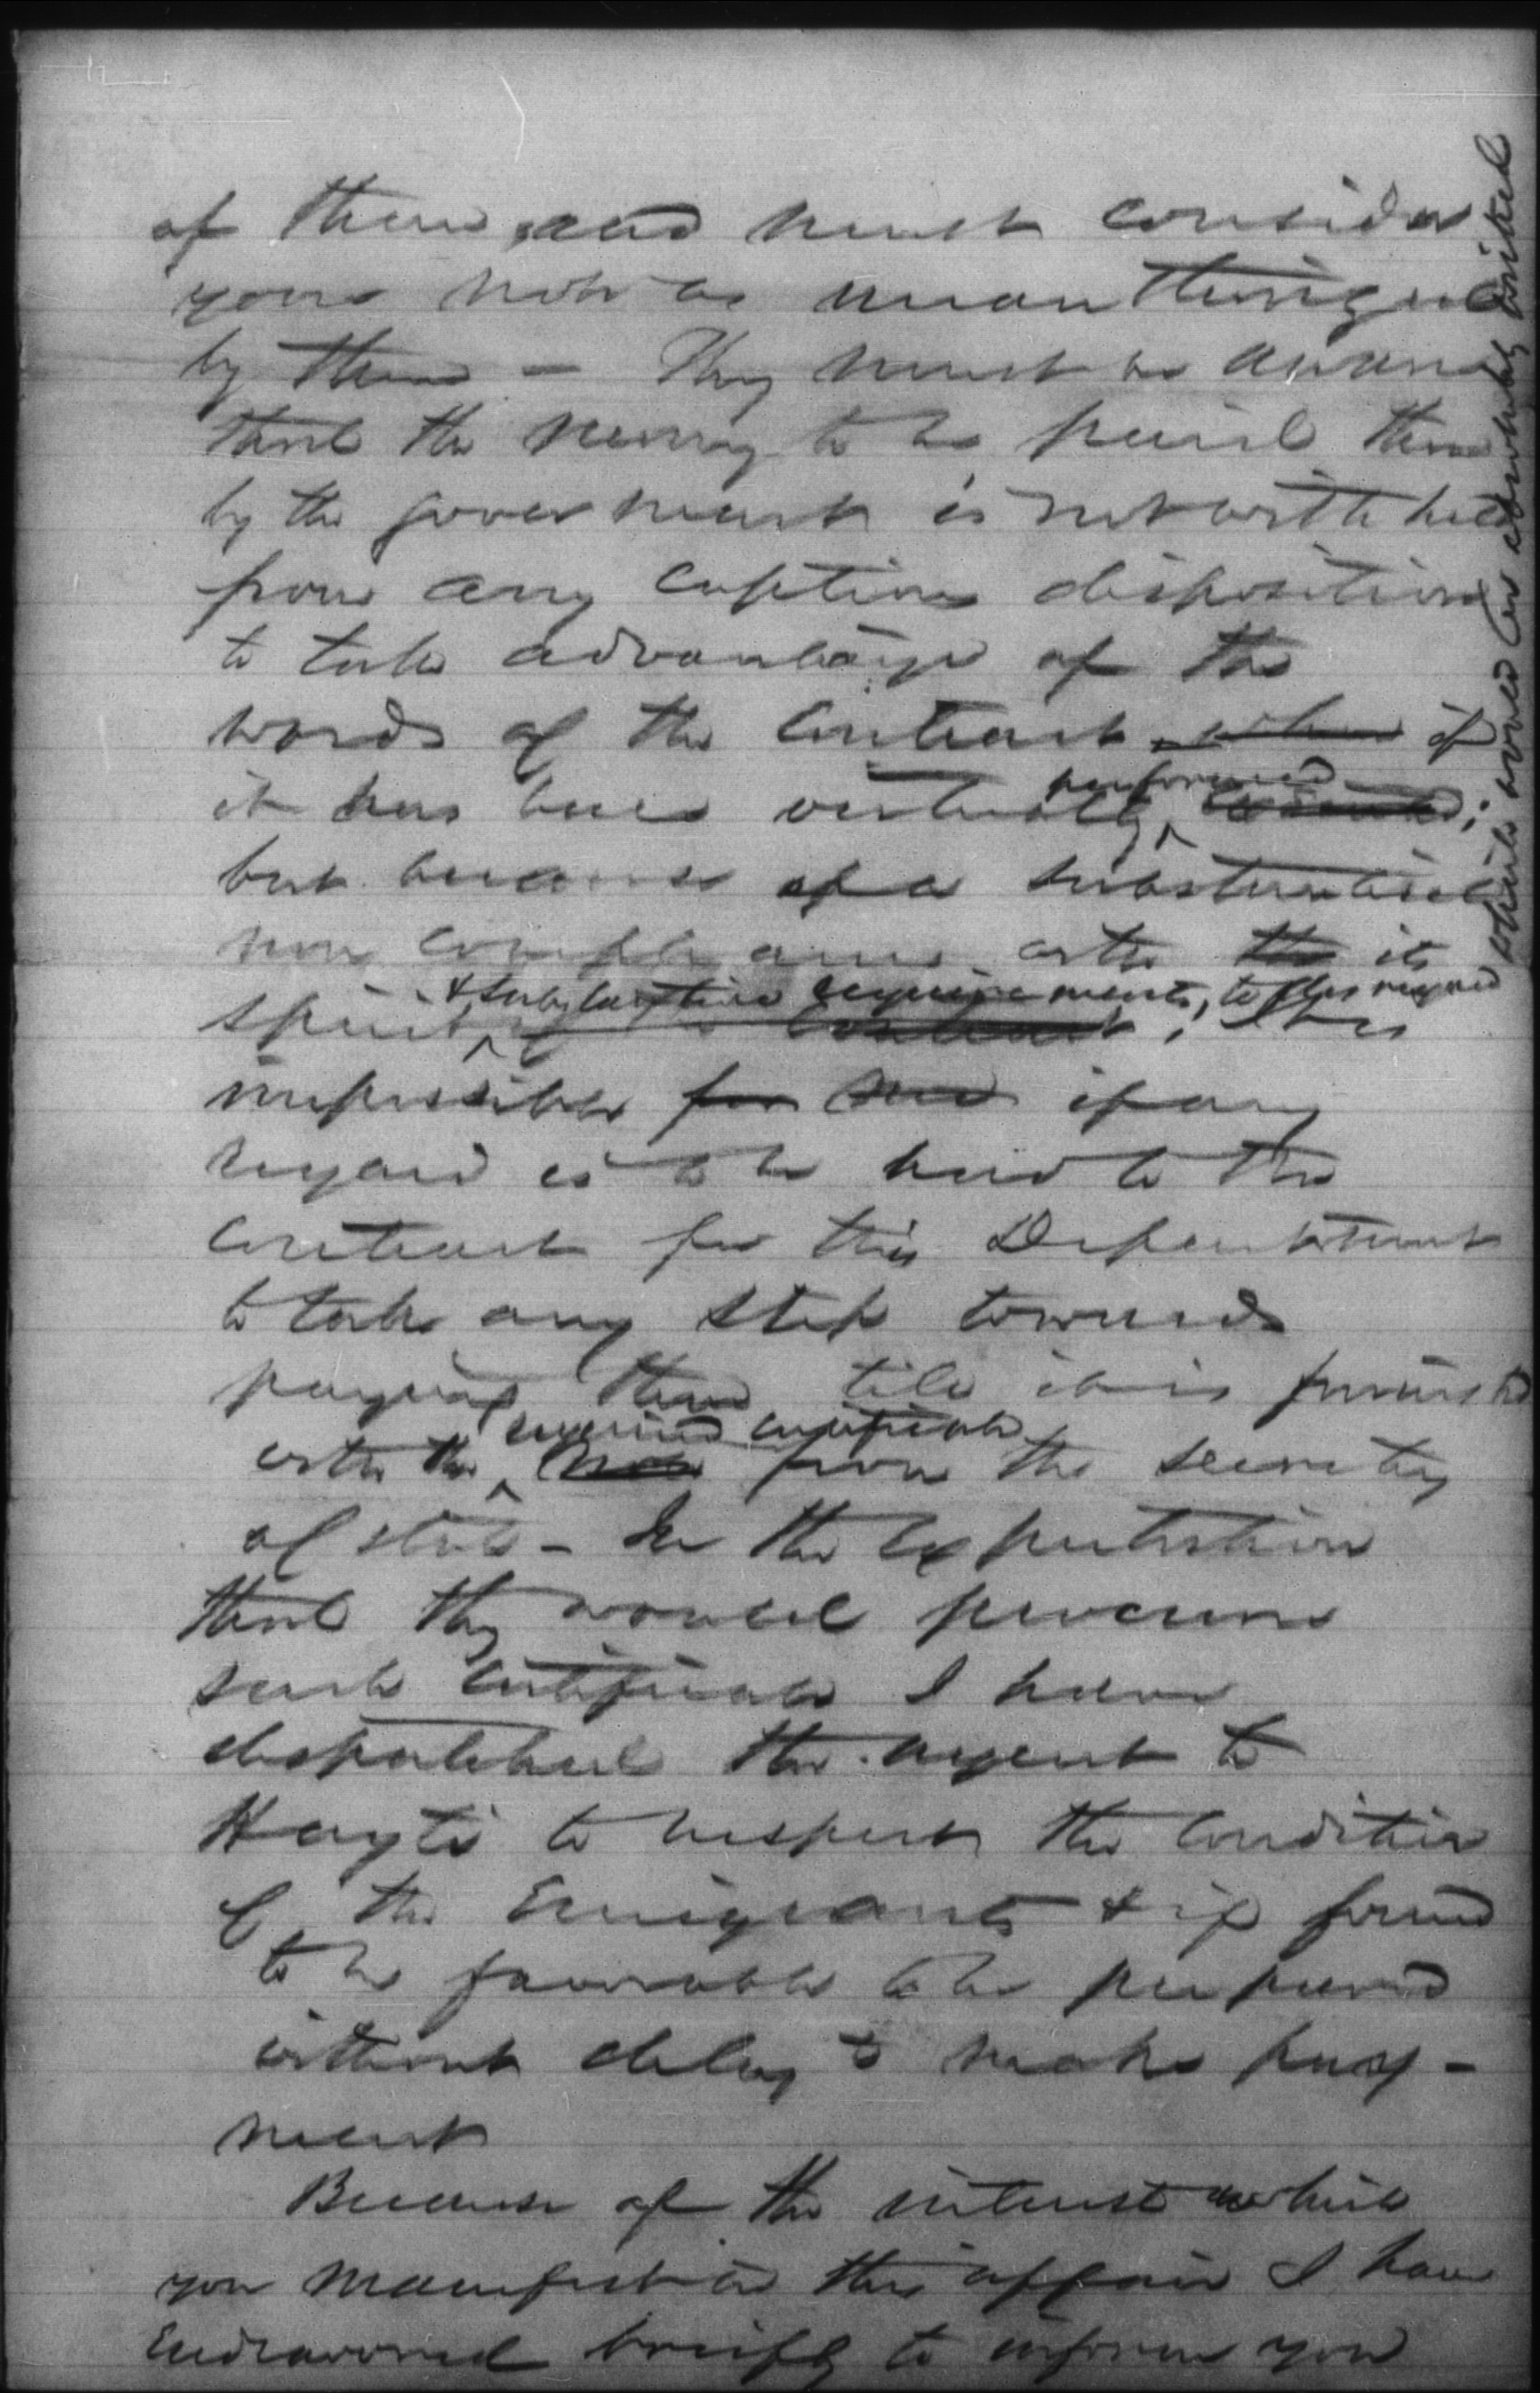 of them, and must consider
your note as unauthorized
by them — They must be aware
that the money to be paid them
by the government is not withheld
from any captious disposition
to take advantage of the
words of the Contract, when if
it has been virtually performed;
but because of a substantial
non compliance with the its
spirit & substantive requirements, to disregard
which would be absolutely wicked
contract; It is
impossible for me if any
regard is to be had to the
Contract for this Department
to take any step towards
paying them till it is furnished
with the required certificate from the Secretary
of State — In the expectation
that they would procure
such Certificate I have
despatched the agent to
Hayti to inspect the Condition
of the Emigrants & if found
to be favorable to be prepared
without delay to make pay-
ment
Because of the interest which
you manifest in this affair I have
Endeavored briefly to inform you